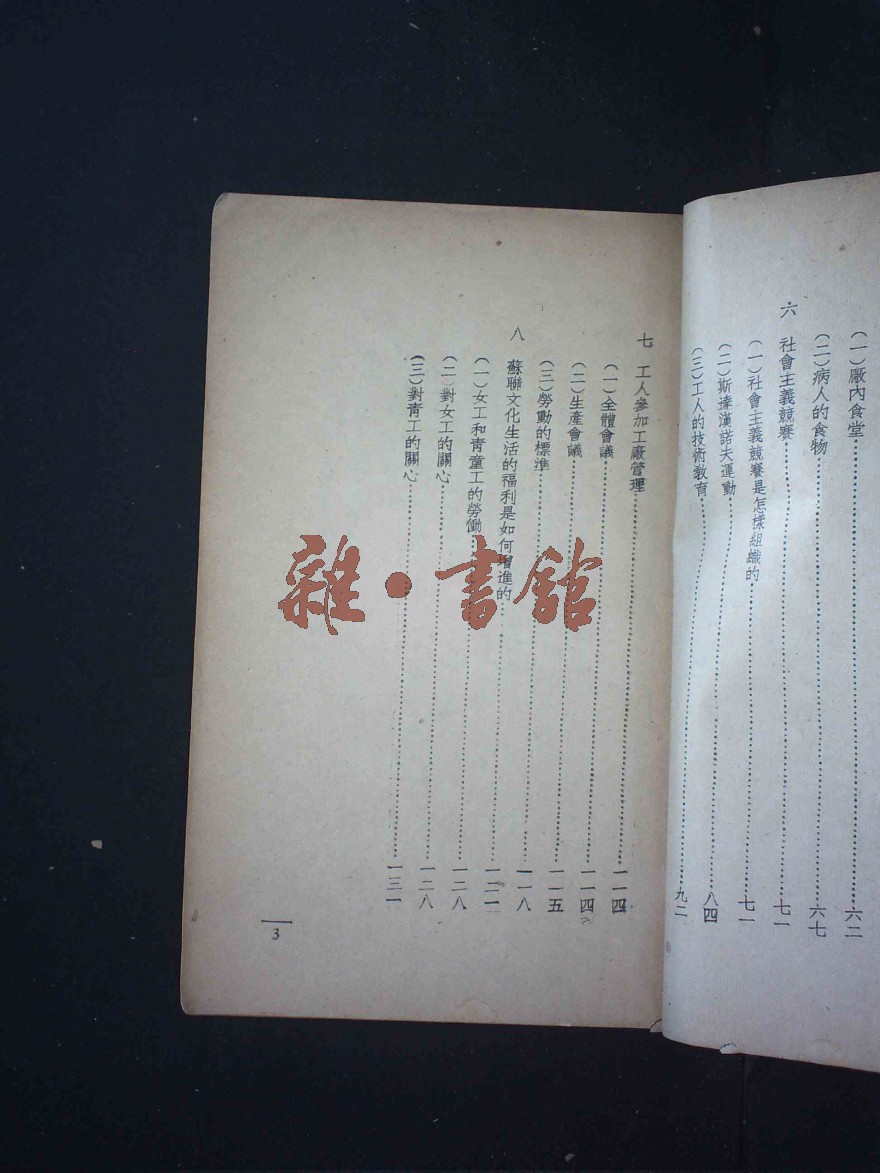 (一)廠內食堂……六二
(二)病人的食物……六七
六 社會主義競賽……七一
(一)社會主義競賽是怎樣組織的……七一
(二)斯達漢諾夫運動……八四
(三)工人的技術教育……九二
七 工人參加工廠管理……一一四
(一)全體會議……一一四
(二)生產會議……一一五
(三)勞動的標準……一一八
八 蘇聯文化生活的福利是如何增進的……一二一
(一)女工和靑童工的勞働……一二八
(二)對女工的關心……一二八
(三)對靑工的關心……一三一
3
雜·書館